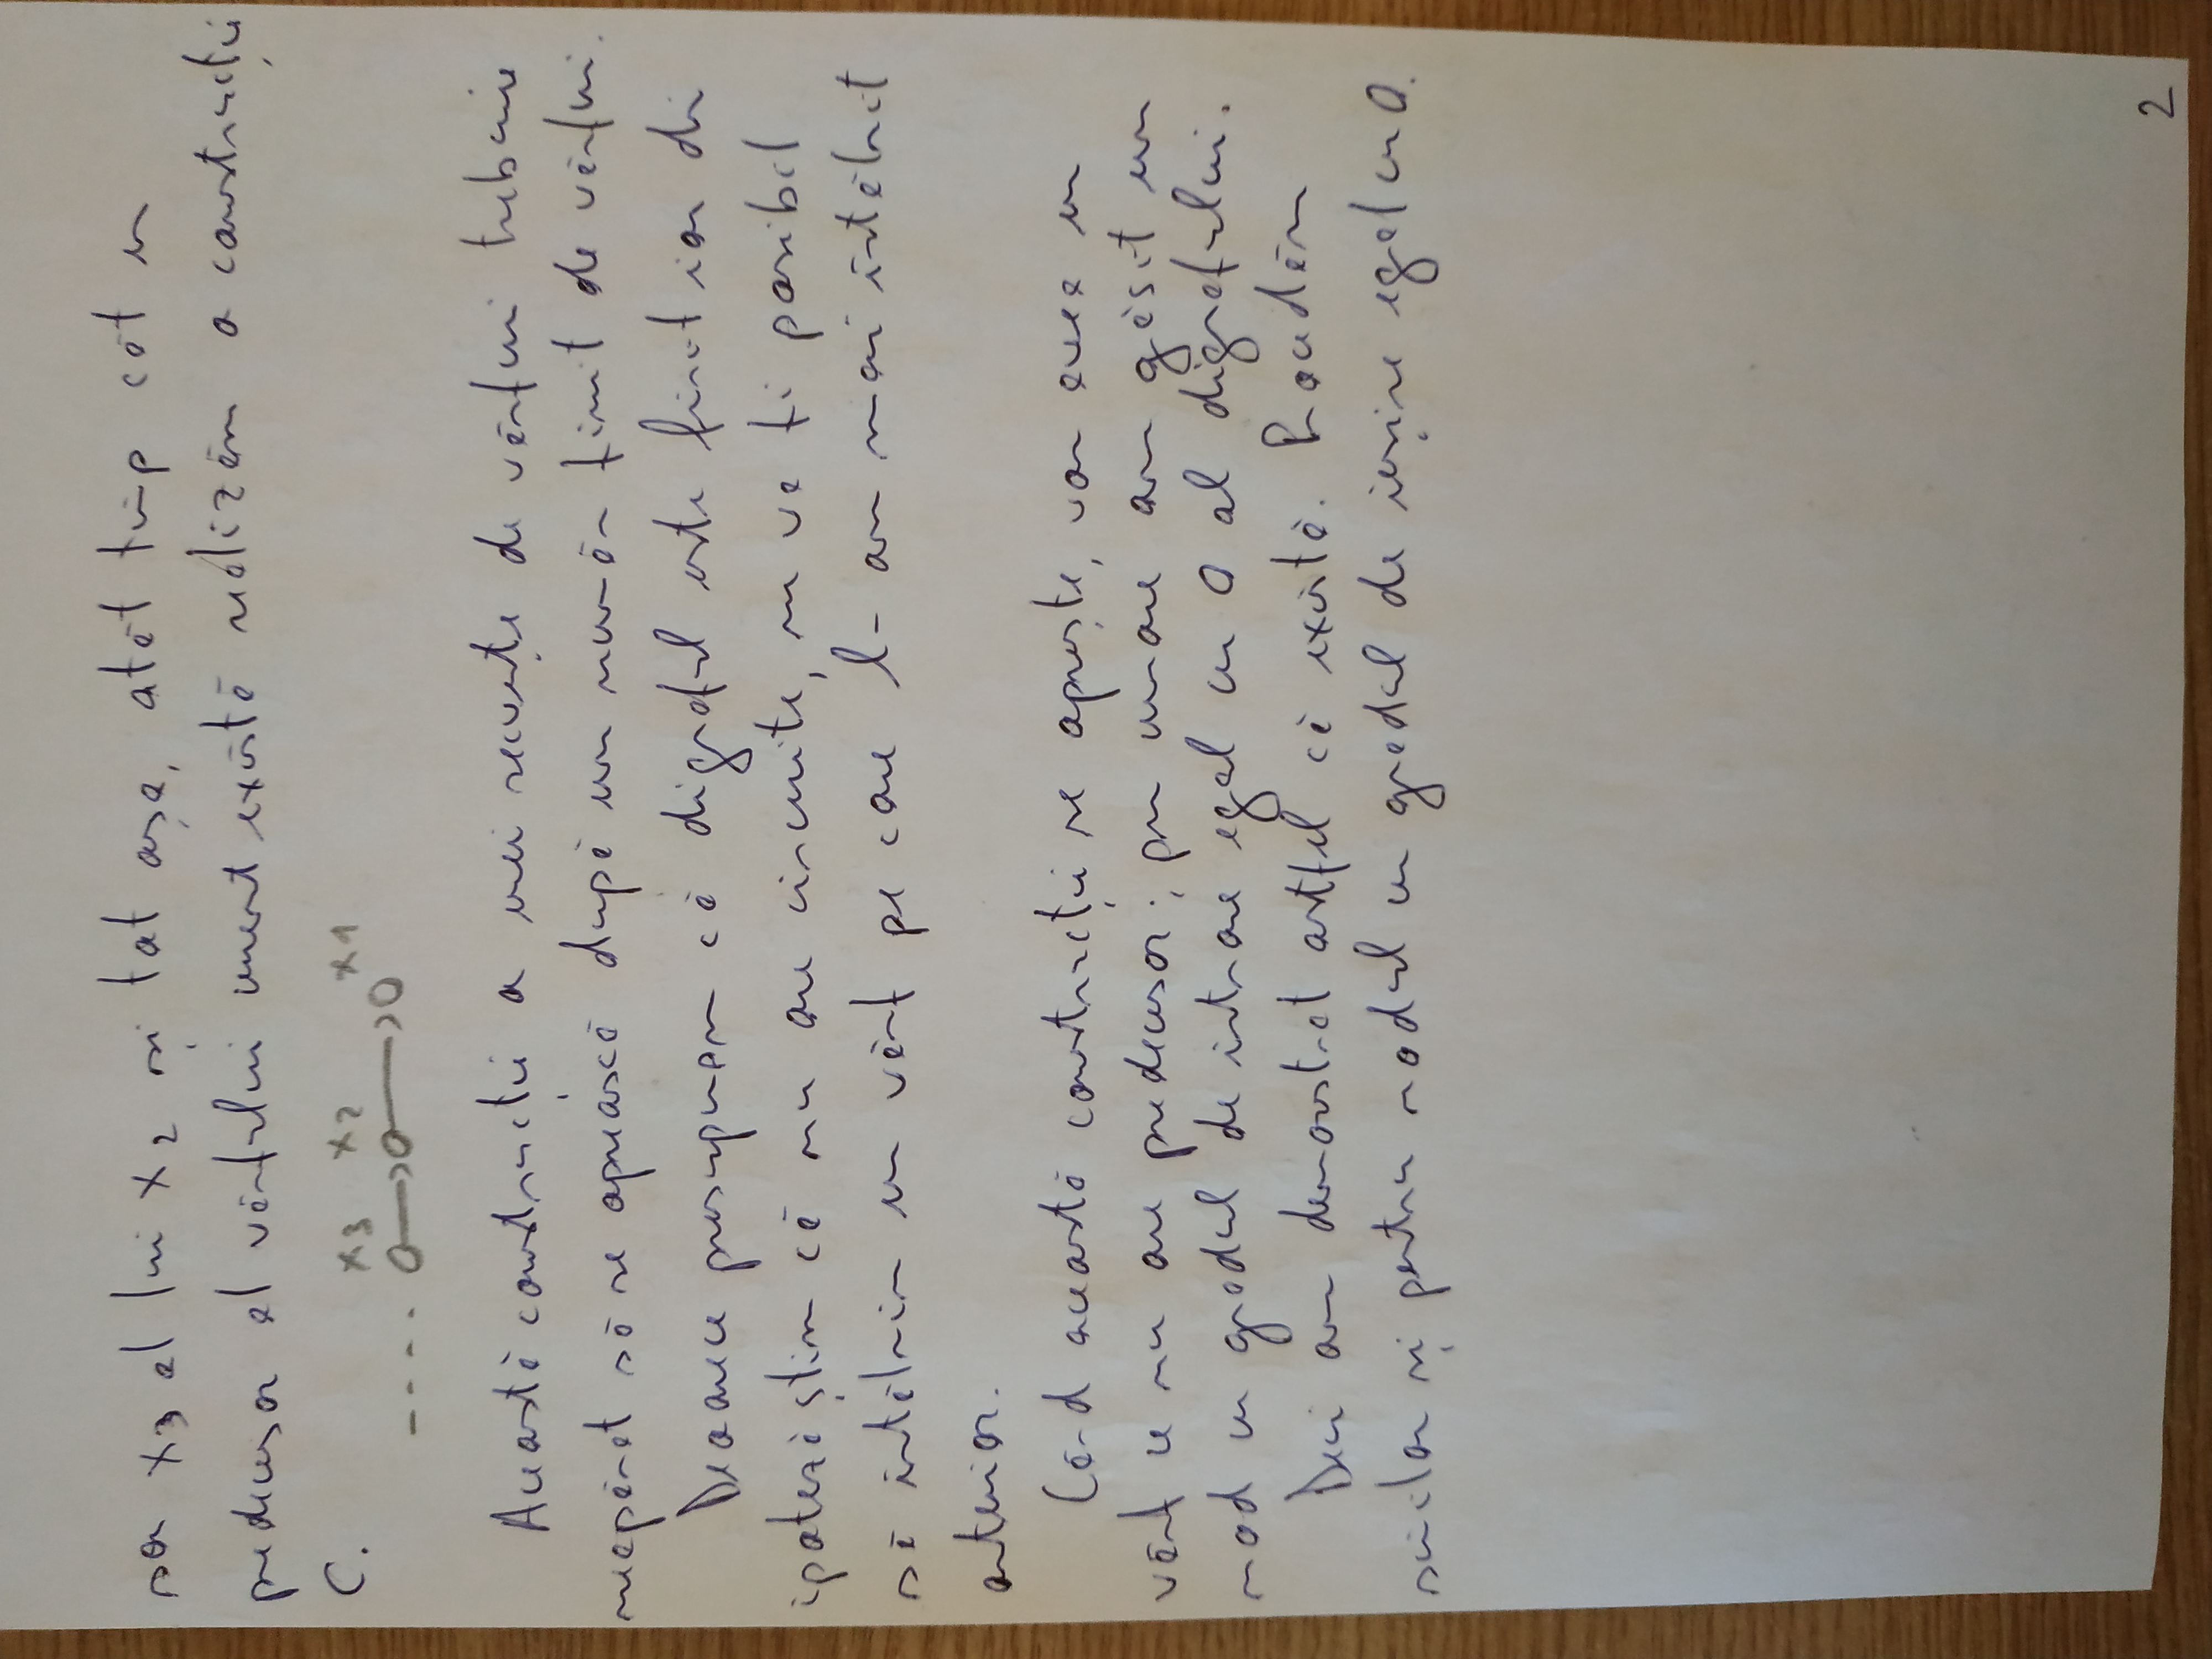 sor x3 al lui x2 și tot așa, atât timp cât un
predecesor al vârfului curent există realizăm o construcție
C.
x3 x2 x1
Această construcție a unei secvențe de vârfuri trebuie
neapărat să se oprească după un număr finit de vârfuri.
Deoarece presupunem că digraful este finit iar din
ipoteză știm că nu are circuite, nu va fi posibil
să întâlnim un vârf pe care l-am mai întâlnit
anterior.
Când această construcție se oprește, vom avea un
vârf ce nu are predecesor; prin urmare am găsit un
nod cu gradul de intrare egal cu 0 al digrafului.
Deci am demonstrat astfel că există. Procedăm
similar și pentru nodul cu gradul de ieșire egal cu 0.
2